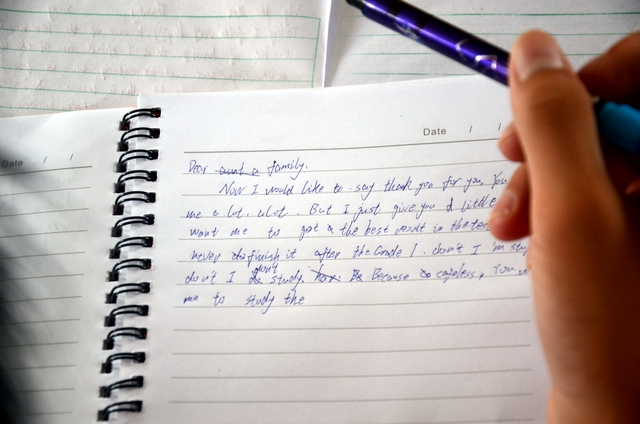 Date / /
Date / /
Dear aunt a family.
Now I would like to say thank you for you, You
me a lot, alot. But I just give you a little
want me to got a the best result in the tes
never do finish it after the Grade 1. don't I'm
don't I don't study. Because so careless, You
me to study the